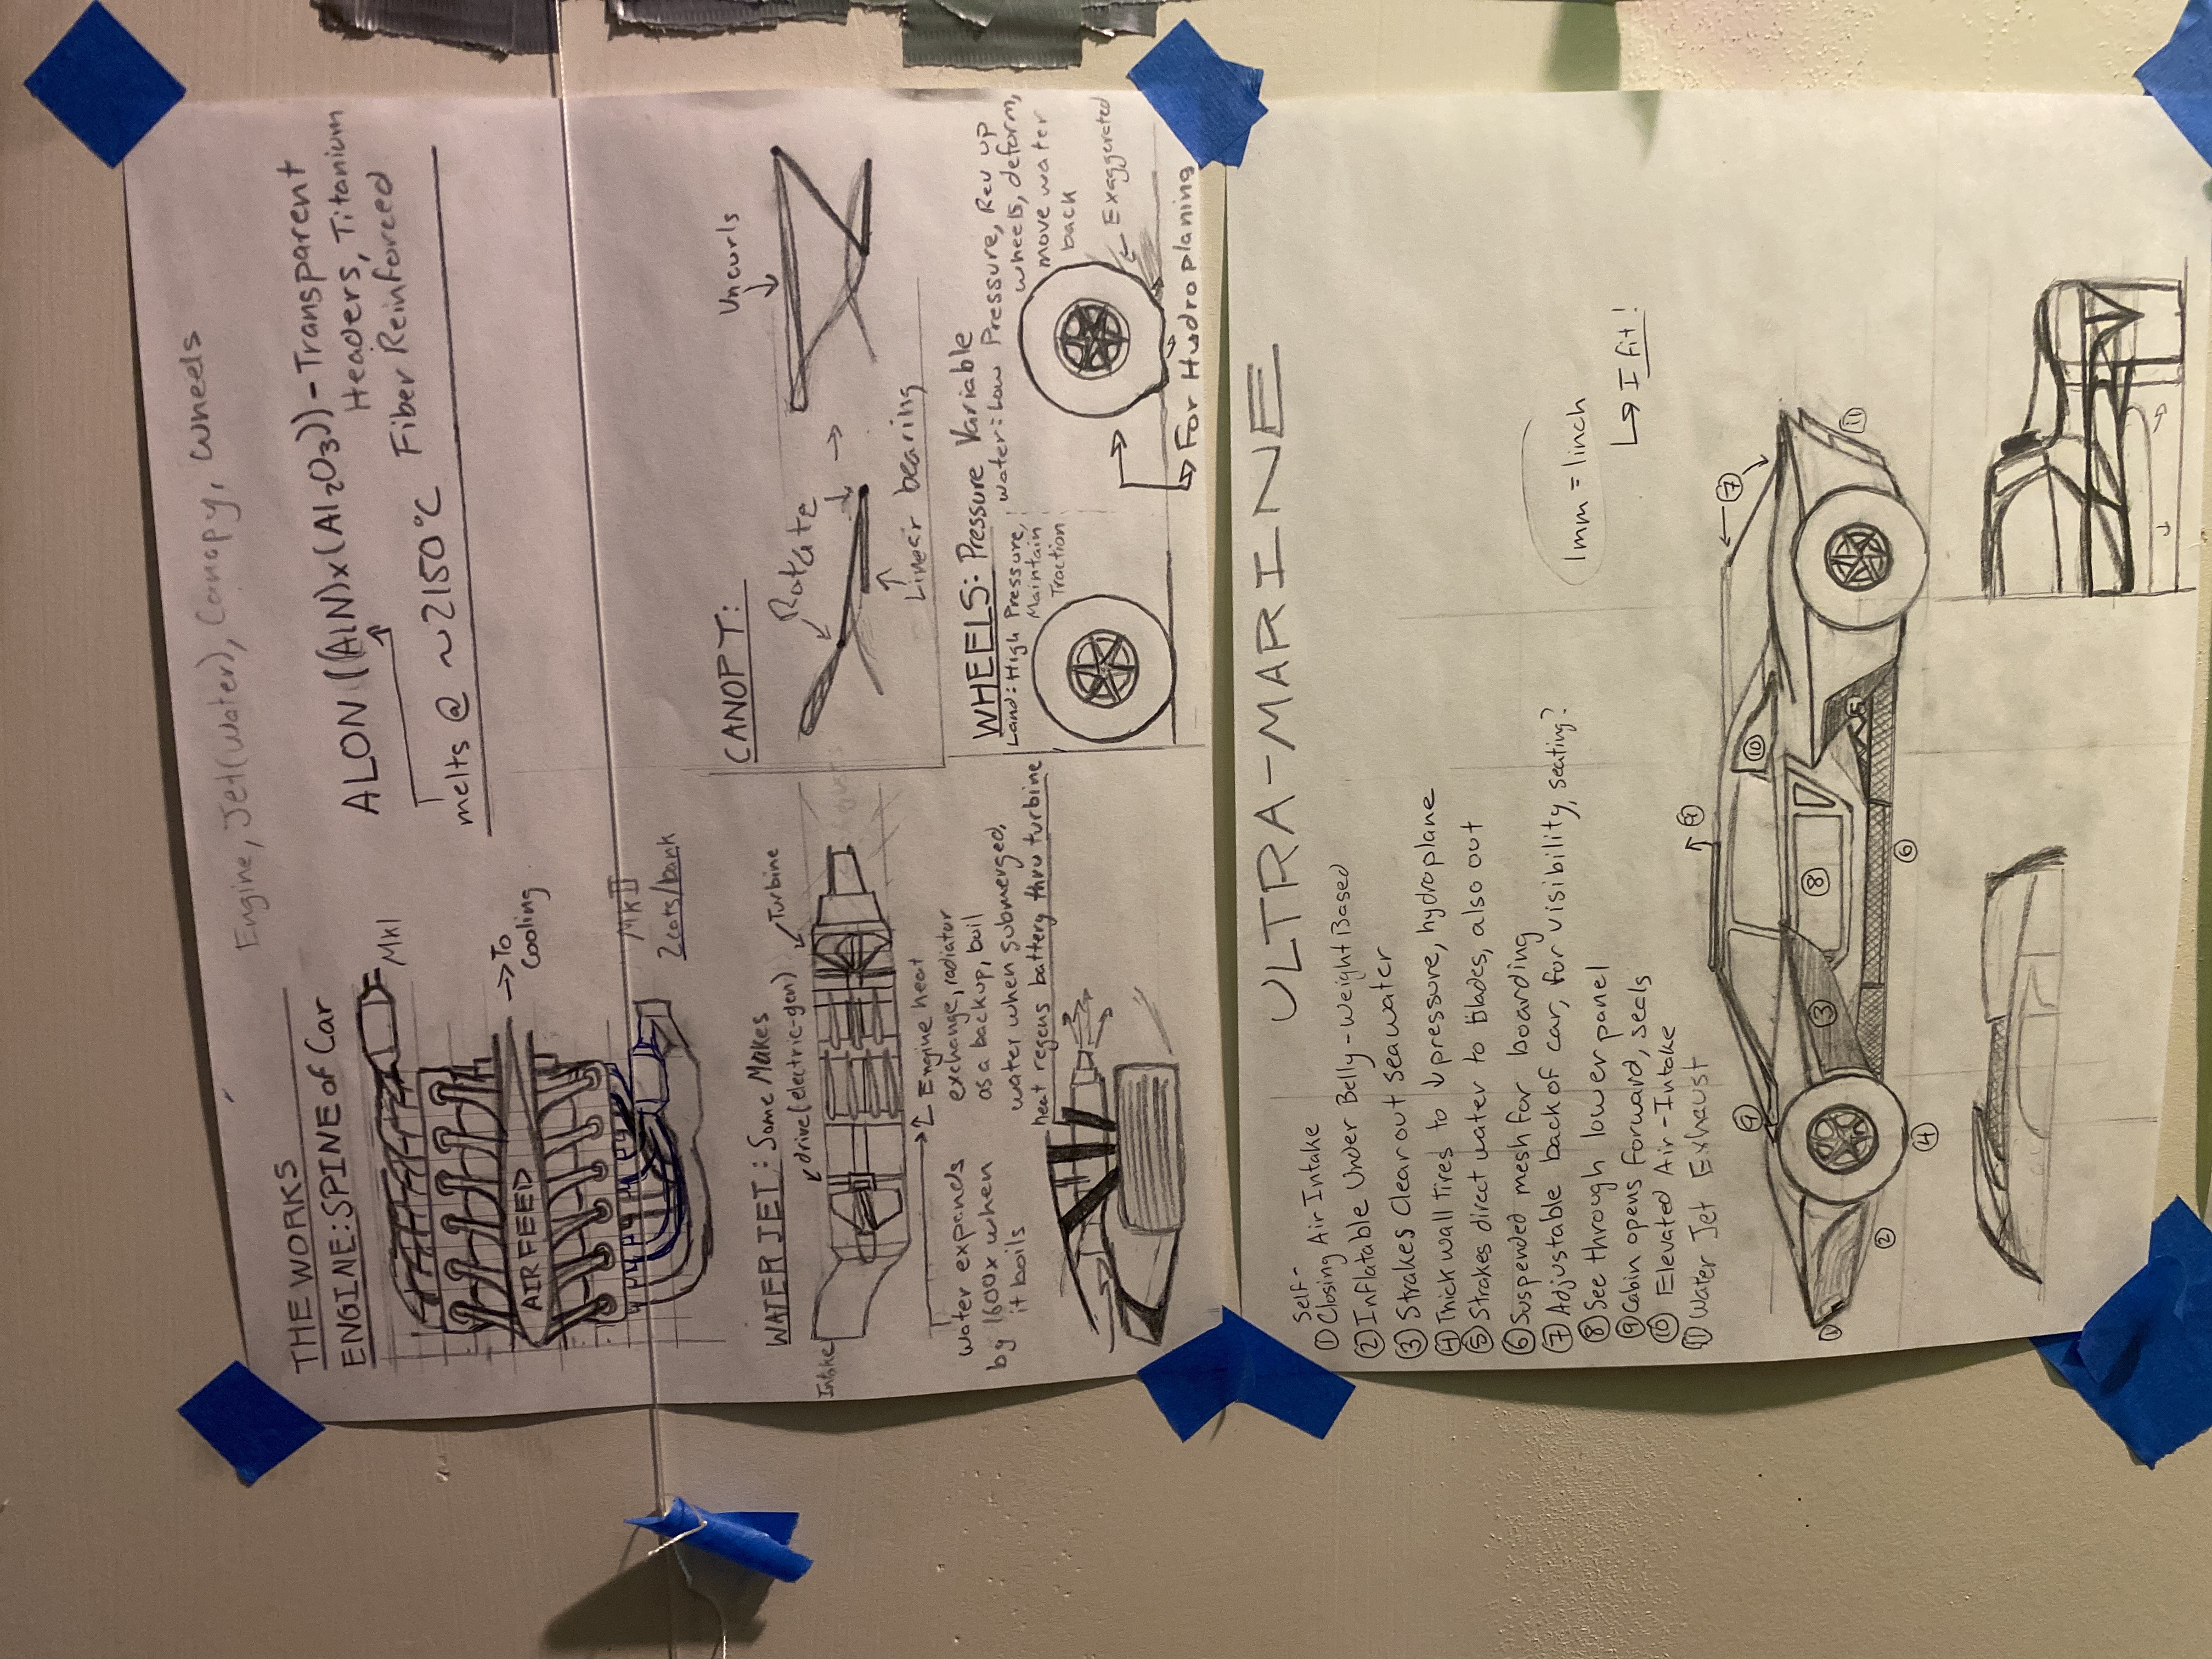 Engine, Jet(Water), Canopy, Wheels
THE WORKS
ENGINE: SPINE of Car
MkI
AIR FEED
→To
Cooling
MkII
2cats/bank
ALON ((AlN)x(Al₂O₃))-Transparent
Headers, Titanium
Fiber Reinforced
melts @ ~2150°C
WATER JET: Some Makes
drive(electric-gen)
Turbine
Intake
Engine heat
exchange, radiator
as a backup, boil
water when submerged,
heat regens battery thru turbine
water expands
by 1600x when
it boils
CANOPY:
Uncurls
Rotate
Linear bearing
WHEELS: Pressure Variable
Land: High Pressure,
Maintain
Traction
Water: Low Pressure, Rev up
wheels, deform,
move water
back
Exaggerated
For Hydroplaning
ULTRA-MARINE
Self-
① Closing Air Intake
② Inflatable Under Belly - Weight Based
③ Strakes Clear out seawater
④ Thick wall tires to ↓ pressure, hydroplane
⑤ Strakes direct water to blades, also out
⑥ Suspended mesh for boarding
⑦ Adjustable back of car, for visibility, seating?
⑧ See through lower panel
⑨ Cabin opens forward, seals
⑩ Elevated Air-Intake
⑪ Water Jet Exhaust
1mm = 1inch
↳ I fit!
⑨
⑨
⑦
⑩
①
③
⑧
5
⑪
②
⑥
④